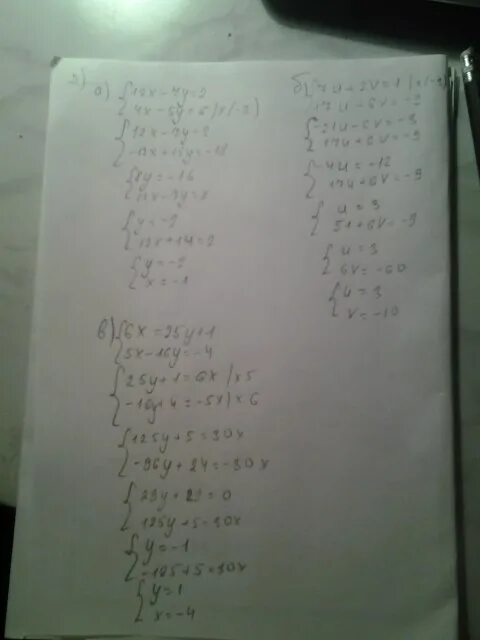 а) {12x-7y=2
4x-5y=6 | x(-3)
{12x-7y=2
-12x+15y=-18
{8y=-16
12x-7y=2
{y=-2
12x+14=2
{y=-2
x=-1
б) {7u+2v=1 | x(-3)
17u+6v=-9
{-21u-6v=-3
17u+6v=-9
{-4u=-12
17u+6v=-9
{u=3
51+6v=-9
{u=3
6v=-60
{u=3
v=-10
в) {6x=25y+1
5x-16y=-4
{25y+1=6x | x5
-16y+4=-5x | x6
{125y+5=30x
-96y+24=-30x
{29y+29=0
125y+5=30x
{y=-1
-125+5=30x
{y=1
x=-4